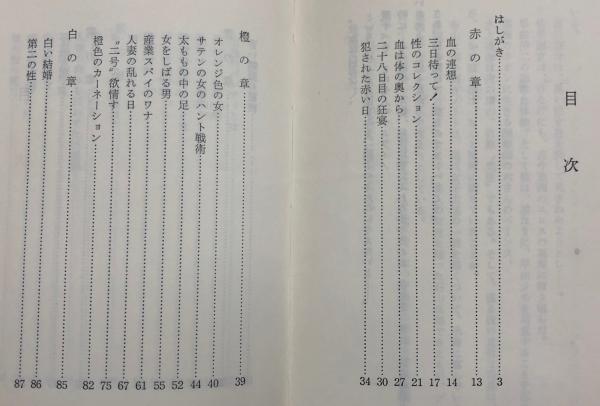 目次
はしがき……3
赤の章……13
血の連想……14
三日待って！……17
性のコレクション……21
血は体の奥から……27
二十八日目の狂宴……30
犯された赤い日……34
橙の章……39
オレンジ色の女……40
サテンの女のハント戦術……44
太ももの中の足……52
女をしばる男……55
産業スパイのワナ……61
人妻の乱れる日……67
“二号”欲情す……75
橙色のカーネーション……82
白の章……85
白い結婚……86
第二の性……87